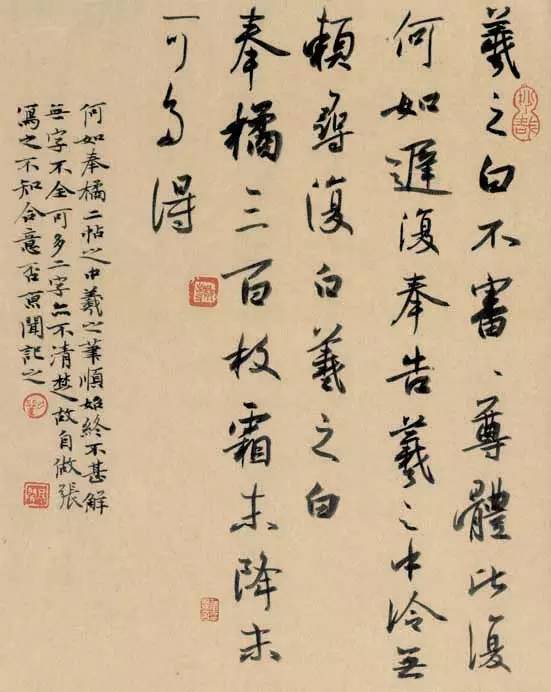 羲之白不審、尊體比復
何如遲復奉告羲之中冷無
賴尋復白羲之白
奉橘三百枚霜未降未
可多得
何如奉橘二帖之中羲之筆順始終不甚解
無字不全可多二字亦不清楚故自做張
寫之不知合意否聞記之